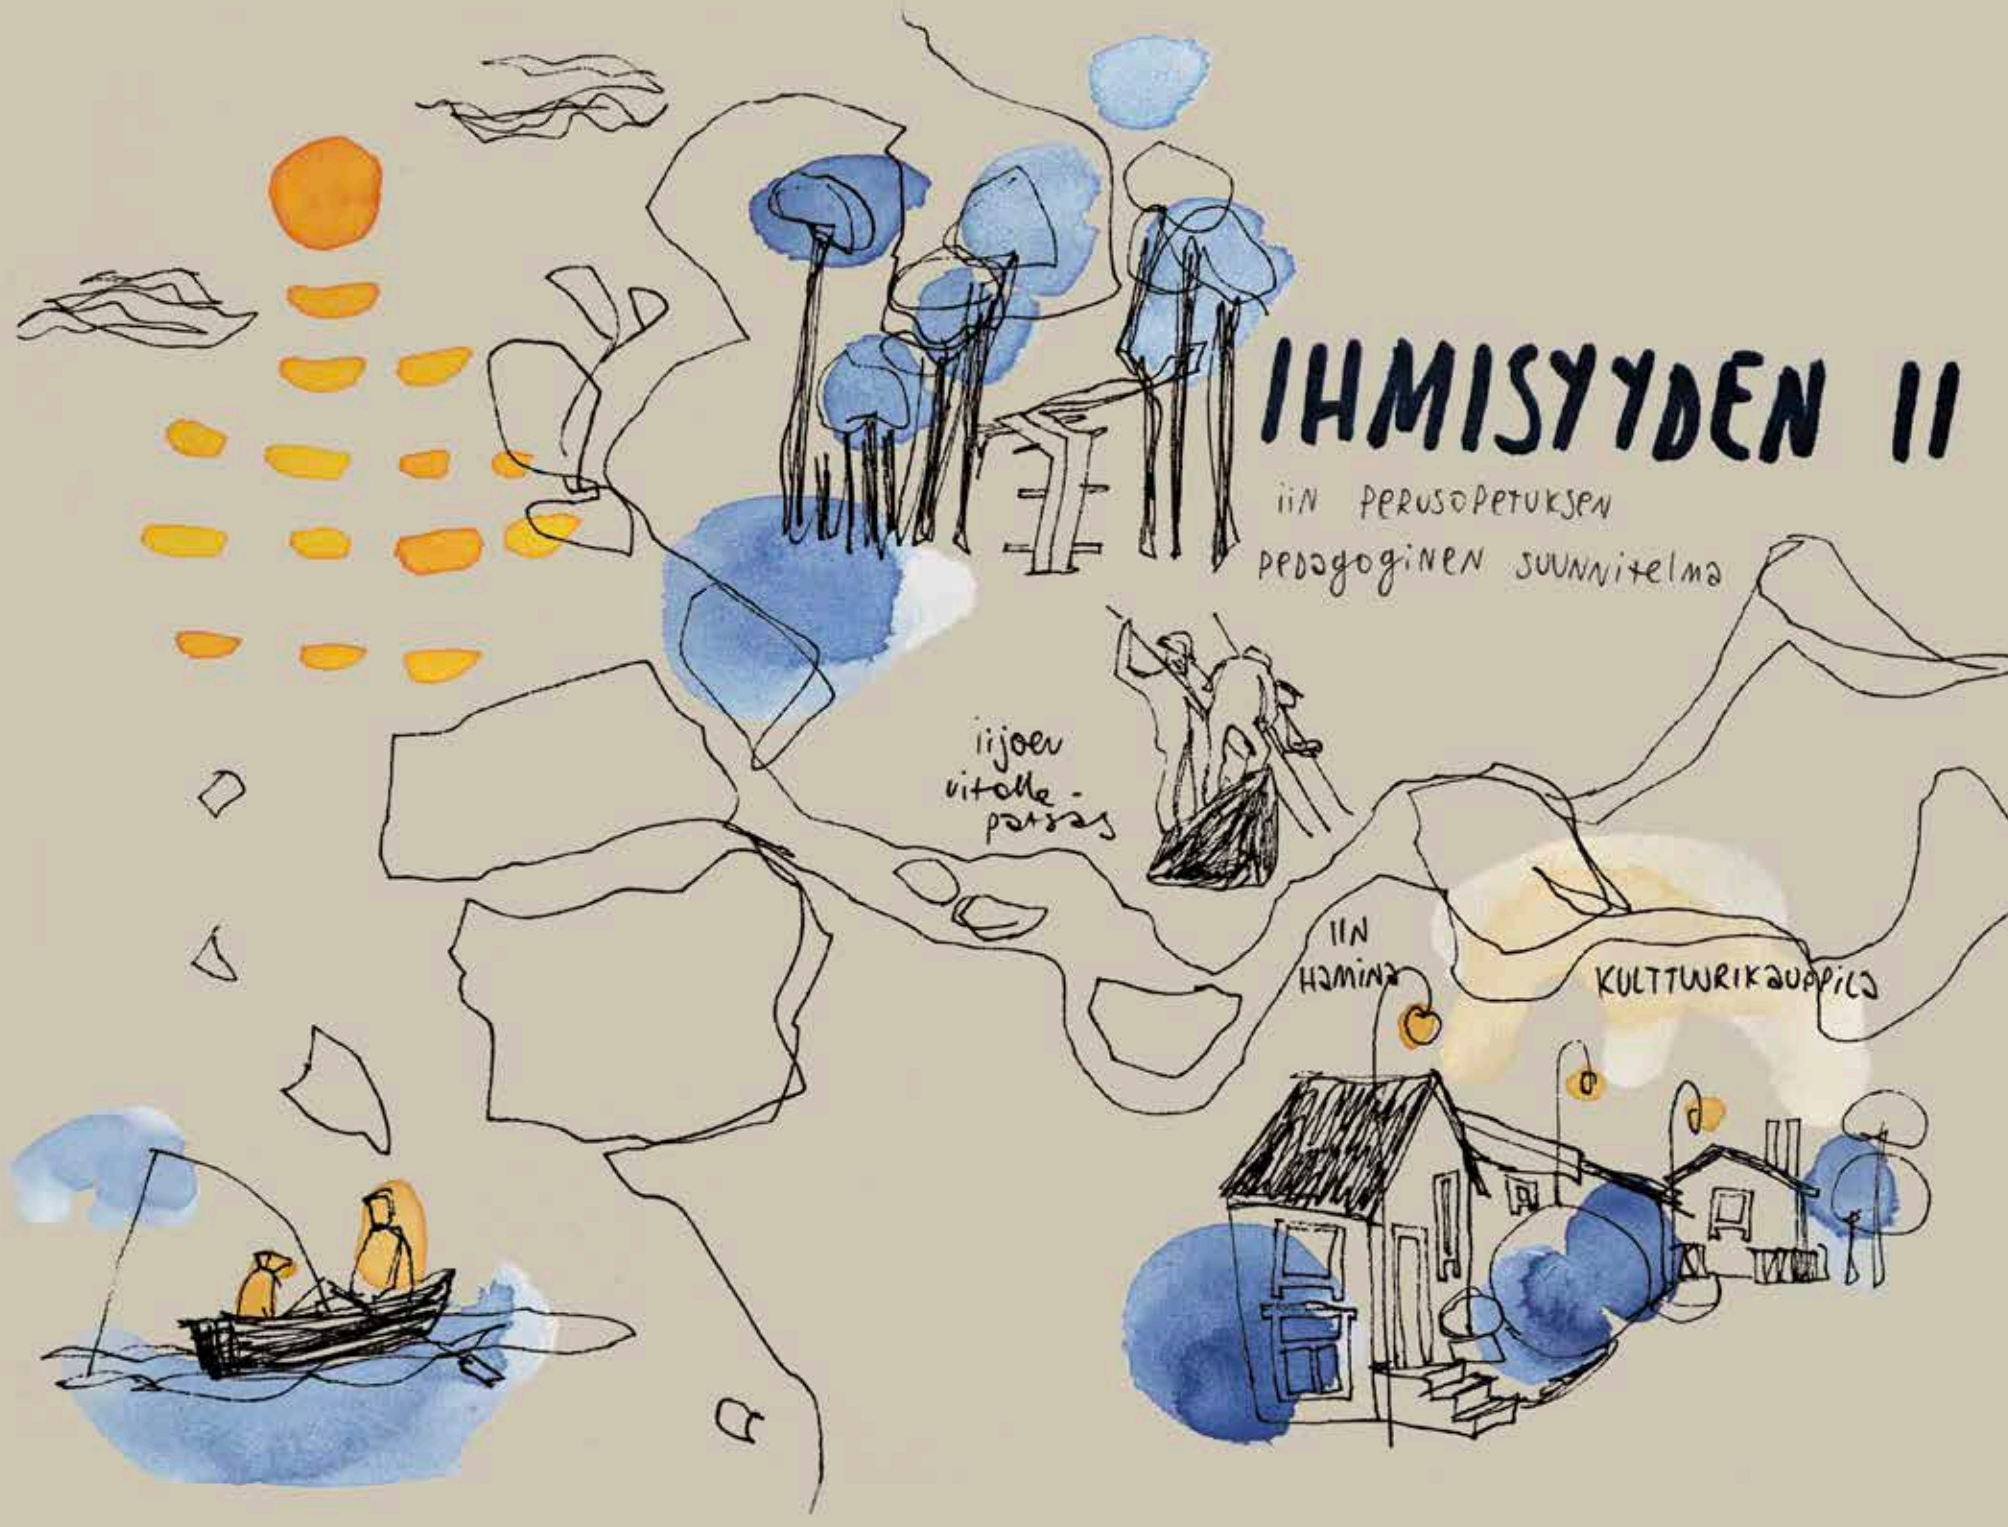 IHMISYYDEN II
iiN PERUSOPETUKSEN
PEDAGOGINEN SUUNNITELMA
iijoen
uitolle -
patsas
IIN
HAMINA
KULTTUURIKAUPPILA